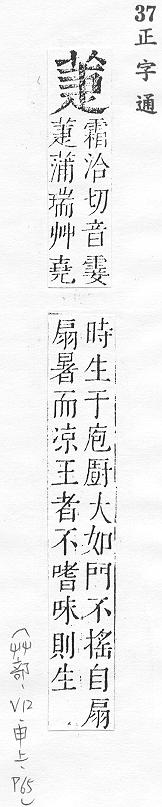 37正字通
萐
霜洽切音霎
萐蒲瑞艸堯
時生于庖廚大如門不搖自扇
扇暑而凉王者不嗜味則生
(艸部、V12、申上、P65)